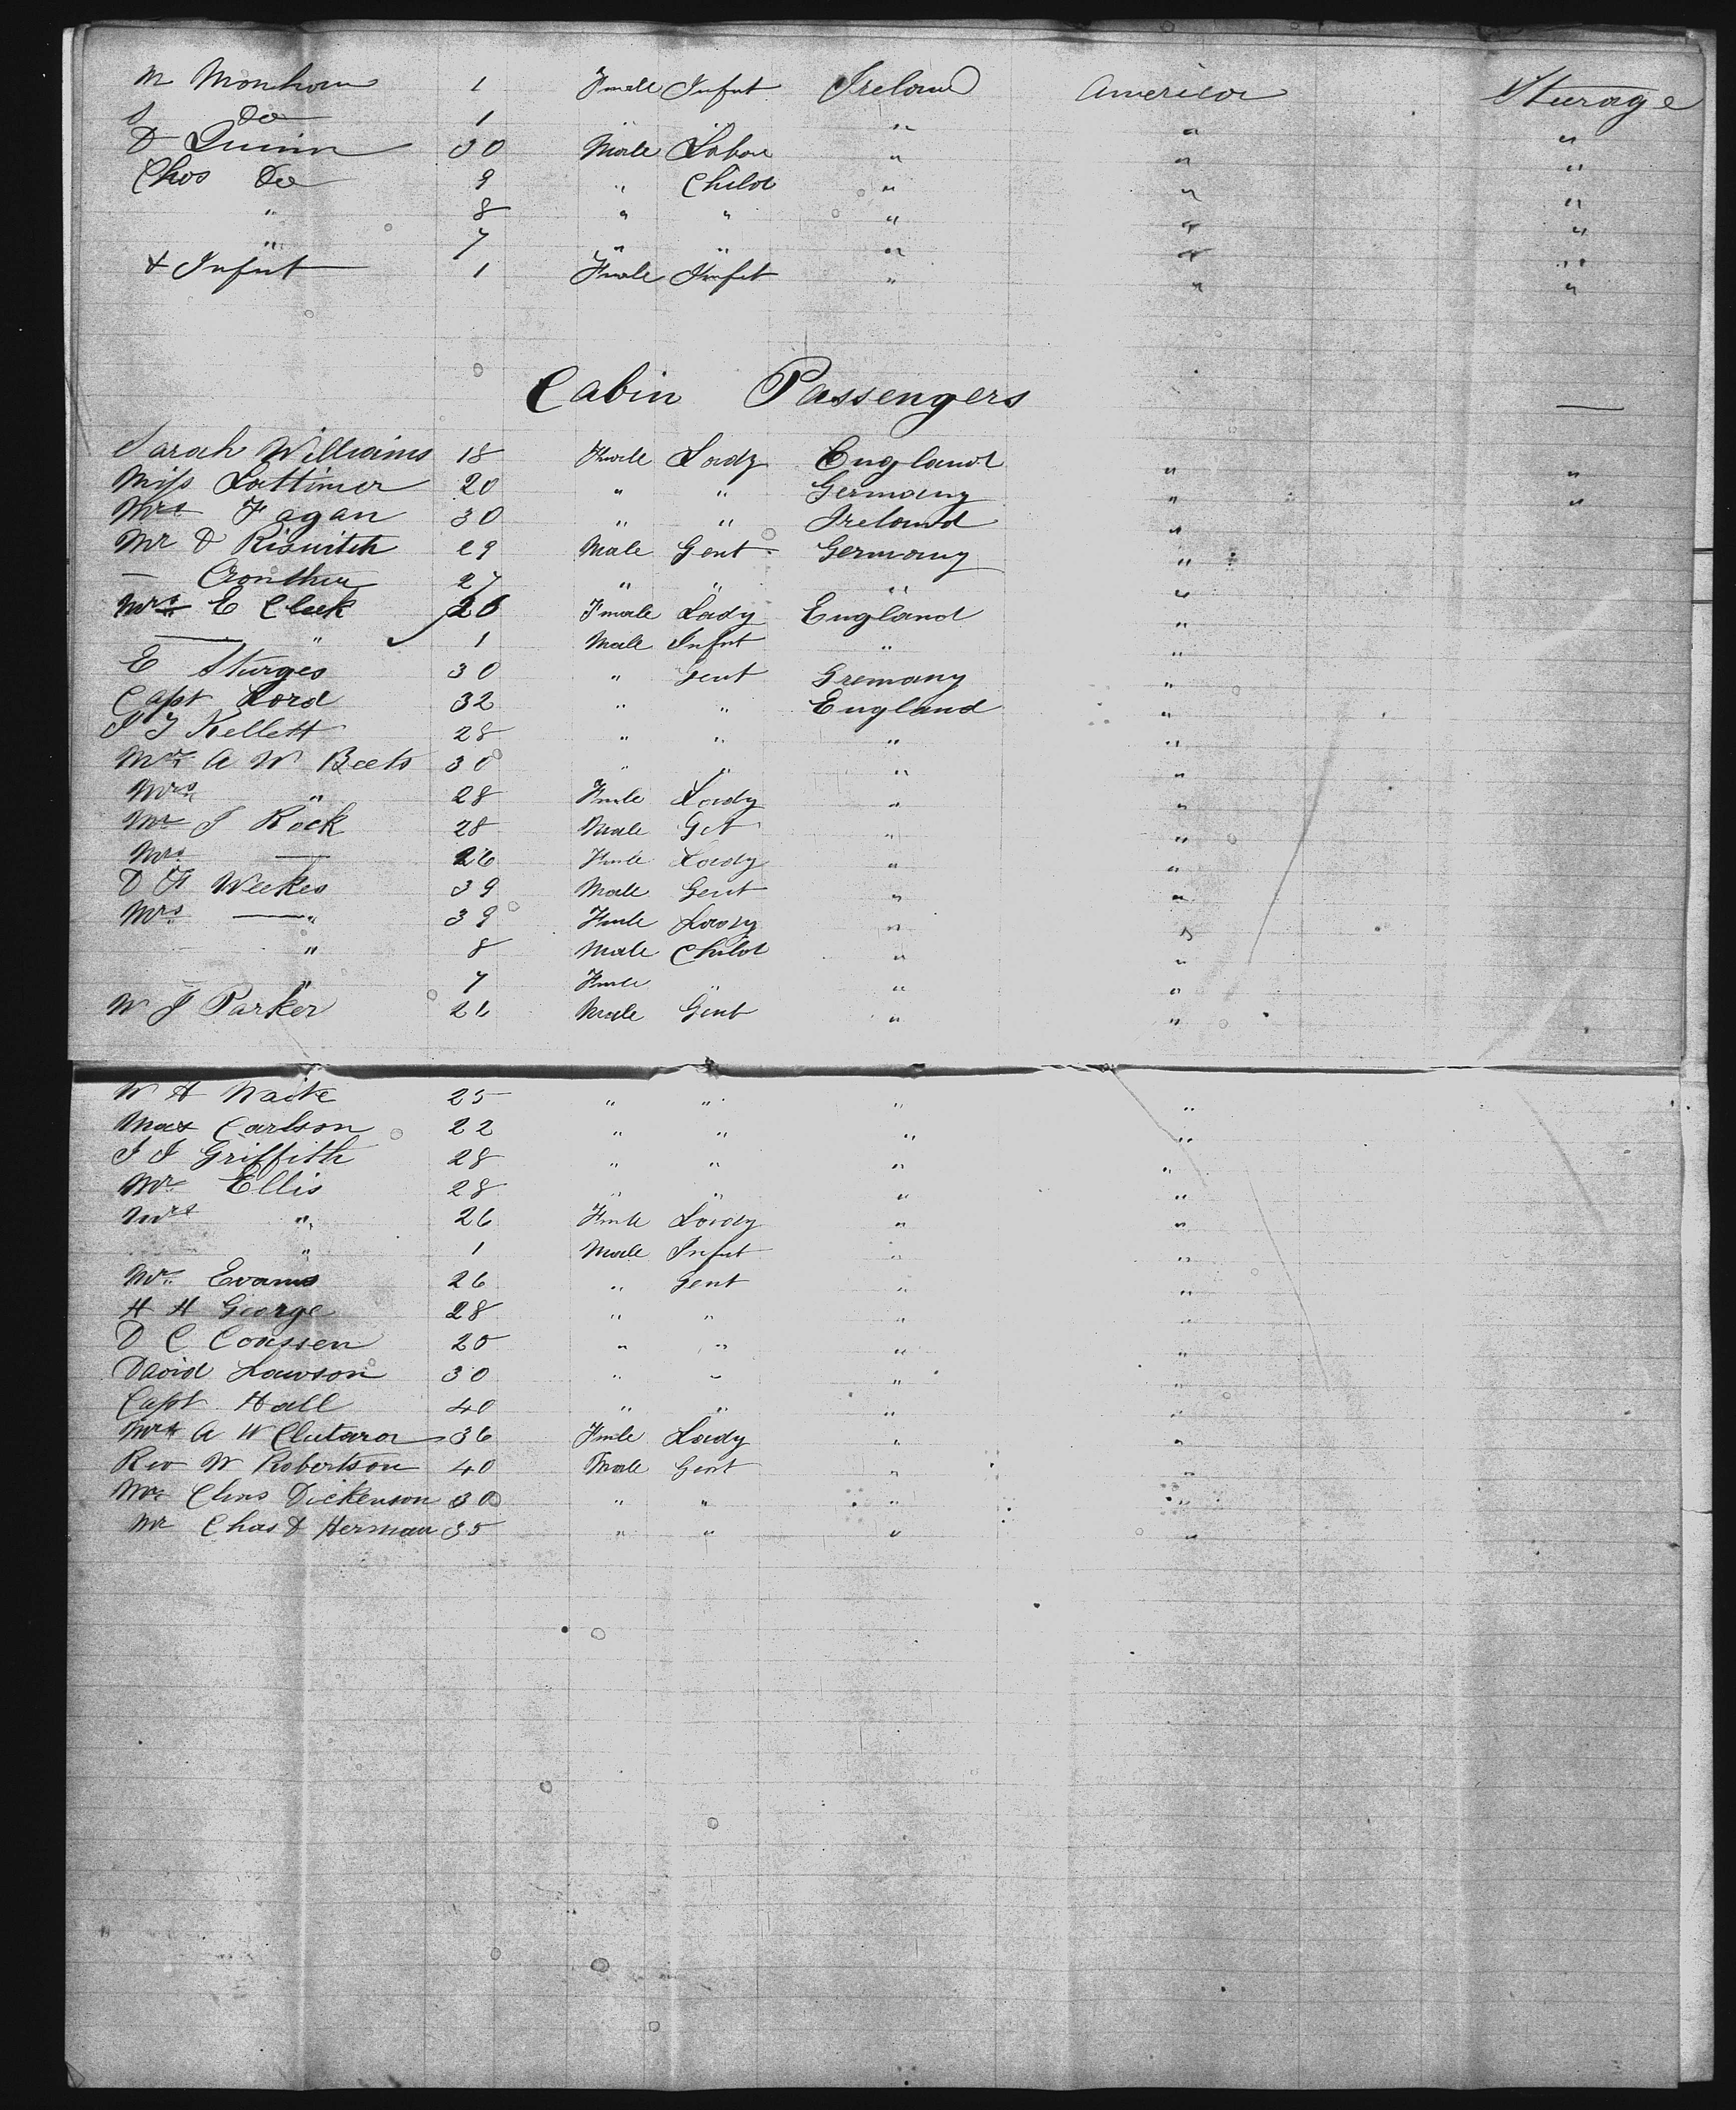 M Monhom 1 Fmale Infnt Ireland America Sturage
S Do 1 " " " " "
D Quinn 30 Male Labor " " "
Chos Do 9 " Child " " "
" 8 " " " " "
" 7 " " " " "
& Infnt 1 Fmale Infnt " " "
Cabin Passengers
Sarah Williams 18 Fmale Lady England " "
Miss Lattimer 20 " " Germany " "
Mrs Fagan 30 " " Ireland "
Mr D Risnitch 29 Male Gent Germany "
— Cronthu 27 " " " "
Mrs E Cleek 26 Fmale Lady England "
" 1 Male Infnt " "
E Sturges 30 " Gent Gremany "
Capt Lord 32 " " England "
S J Kellett 28 " " " "
Mr A W Beets 30 " " " "
Mrs " 28 Fmle Lady " "
Mr J Rock 28 Male Gnt " "
Mrs — 26 Fmle Lady " "
D F Weekes 39 Male Gent " "
Mrs — " 39 Fmle Lady " "
" 8 Male Child " "
" 7 Fmle " " "
W J Parker 26 Male Gent " "
W H Waite 25 " " " "
Max Carlson 22 " " " "
J J Griffith 28 " " " "
Mr Ellis 28 " " " "
Mrs " 26 Fmle Lady " "
" 1 Male Infnt " "
Mr Evans 26 " Gent " "
H H George 28 " " " "
D C Coassen 20 " " " "
David Lawson 30 " " " "
Capt Hall 40 " " " "
Mrs A W Clutara 36 Fmle Lady " "
Rev W Robertson 40 Male Gent " "
Mr Chas Dickenson 30 " " " "
Mr Chas D Herman 35 " " " "